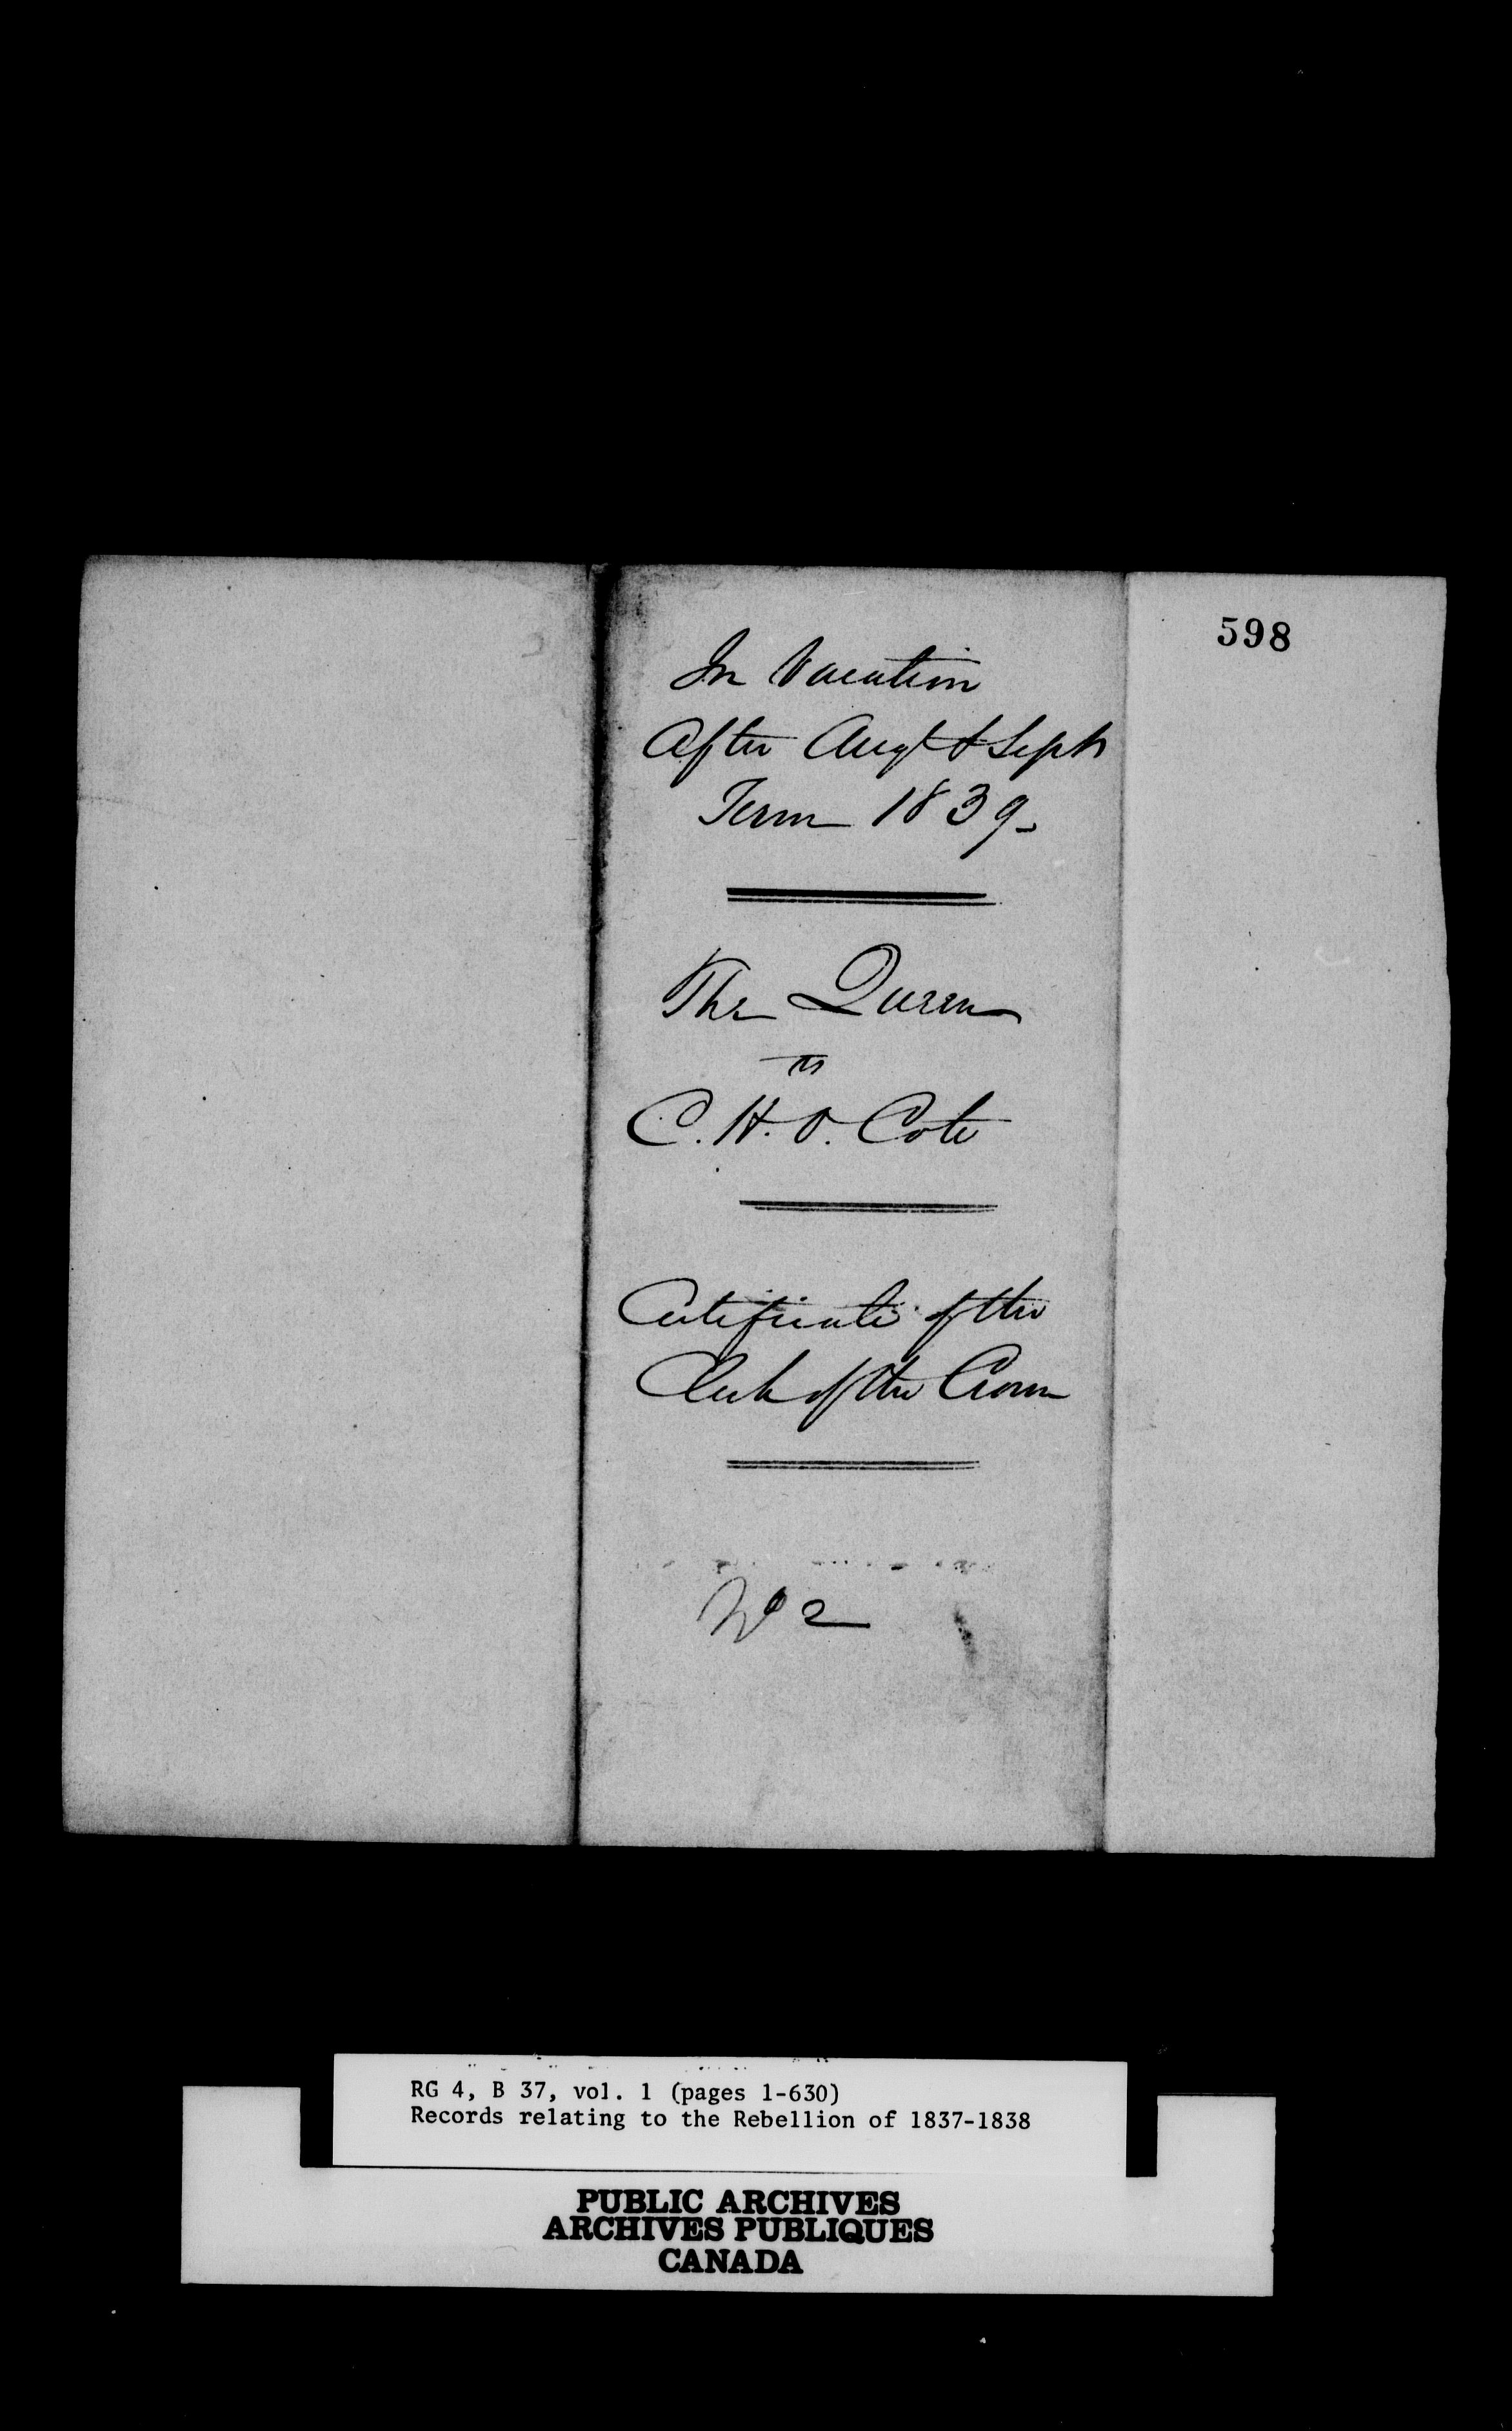 598
In Vacation
After Augt & Septr
Term 1839.
The Queen
vs
C. H. O. Cote
Certificate of the
Clerk of the Crown
No 2
RG 4, B 37, vol. 1 (pages 1-630)
Records relating to the Rebellion of 1837-1838
PUBLIC ARCHIVES
ARCHIVES PUBLIQUES
CANADA